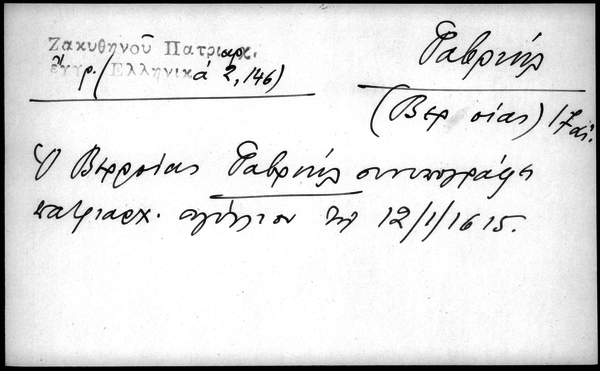 Ζακυθηνοῦ Πατριαρχ.
ἔγγρ. (Ἑλληνικά 2, 146)
Γαβριήλ
(Βερροίας) 17 αἰ.
Ὁ Βερροίας Γαβριήλ συνυπογράφει
πατριαρχ. σιγίλλιον τῇ 12/1/1615.